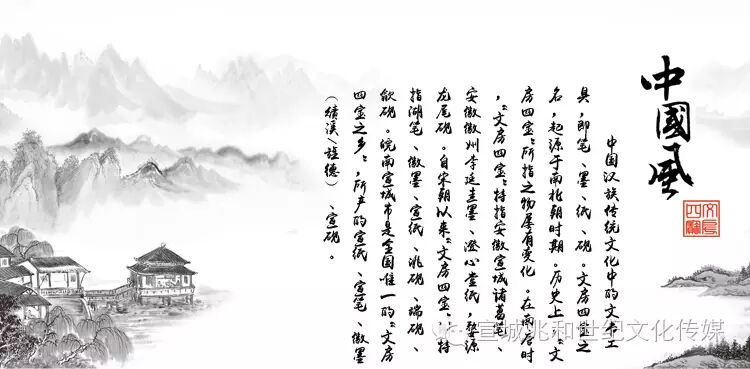 中國風
文房四寶
中国汉族传统文化中的文书工
具，即笔、墨、纸、砚。文房四宝之
名，起源于南北朝时期。历史上，“文
房四宝”所指之物屡有变化。在南唐时
，“文房四宝”特指安徽宣城诸葛笔、
安徽徽州李廷圭墨、澄心堂纸，婺源
龙尾砚。自宋朝以来“文房四宝”特
指湖笔、徽墨、宣纸、洮砚、端砚、
歙砚。皖南宣城市是全国惟一的“文房
四宝之乡”，所产的宣纸、宣笔、徽墨
（绩溪/旌德）、宣砚。
宣城兆和世纪文化传媒